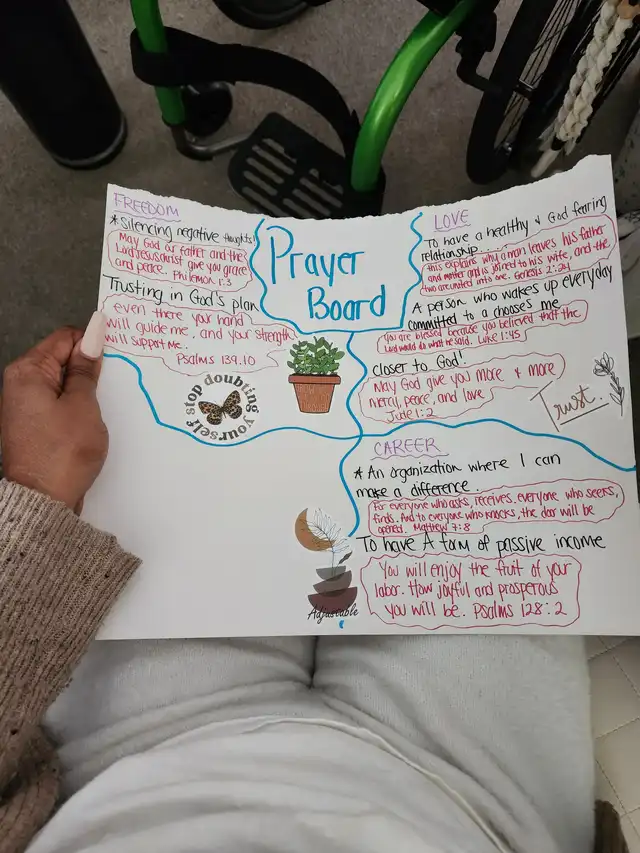 FREEDOM
* Silencing negative thoughts!
May God our father and the
Lord Jesus Christ give you grace
and peace. Philemon 1:3
Trusting in God's plan
even there your hand
will guide me, and your strength
will support me.
Psalms 139.10
stop doubting yourself
Prayer
Board
LOVE
To have a healthy & God fearing
relationship....
this explains why a man leaves his father
and mother and is joined to his wife, and the
two are united into one. Genesis 2:24
A person who wakes up everyday
committed to & chooses me
You are blessed because you believed that the
Lord would do what he said. Luke 1:45
closer to God!
May God give you more & more
mercy, peace, and love
Jude 1:2
Trust.
CAREER
* An organization where I can
make a difference.
For everyone who asks, receives, everyone who seeks,
finds. And to everyone who knocks, the door will be
opened. Matthew 7:8
To have A form of passive income
You will enjoy the fruit of your
labor. How joyful and prosperous
you will be. Psalms 128:2
Adjustable